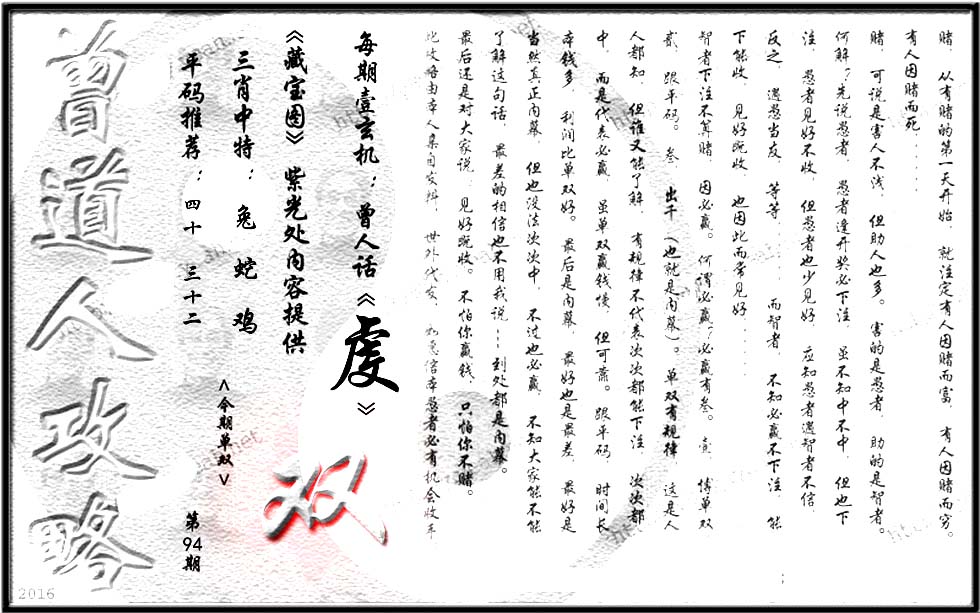 赌，从有赌的第一天开始，就注定有人因赌而富，有人因赌而穷。
有人因赌而死......
赌，可说是害人不浅，但助人也多。害的是愚者，助的是智者。
何解？先说愚者，愚者逢开奖必下注，虽不知中不中，但也下
注，愚者见好不收，但愚者也少见好，应知愚者遇智者不信，
反之，遇愚当友，等等......而智者，不知必赢不下注，能
下能收，见好既收，也因此而常见好......
智者下注不算赌，因必赢。何谓必赢？必赢有叁。壹，博单双
贰，跟平码。叁，出千（也就是内幕）。单双有规律，这是人
人都知，但谁又能了解，有规律不代表次次都能下注，次次都
中，而是代表必赢，虽单双赢钱慢，但可靠。跟平码，时间长
本钱多，利润比单双好。最后是内幕，最好也是最差，最好是
当然真正内幕，但也没法次次中，不过也必赢，不知大家能不能
了解这句话，最差的相信也不用我说......到处都是内幕。
最后还是对大家说，见好既收。不怕你赢钱，只怕你不赌。
此攻略由本人亲自发辑，世外代友，如愿信本愚者必有机会收车
每期壹玄机：曾人话《虔》
《藏宝图》紫光处内容提供
三肖中特：兔 蛇 鸡
平码推荐：四十 三十二
<今期单双>
双
第94期
曾道人攻略
2016